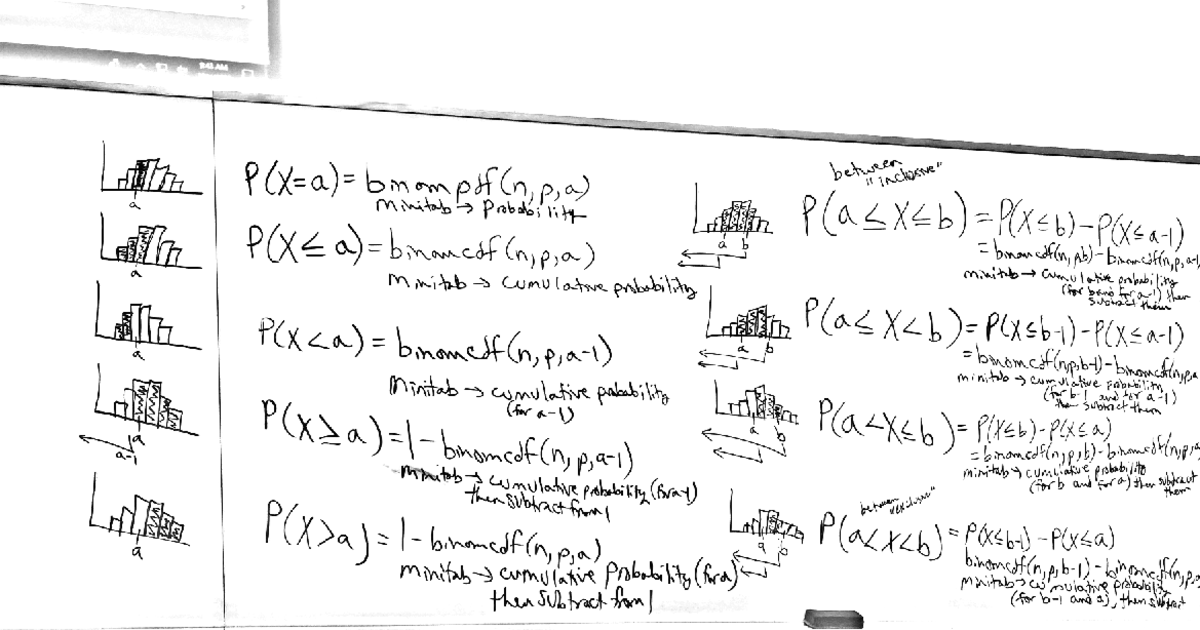 9:43 AM
P(X=a)=binompdf(n,p,a)
minitab→ Probability
P(X≤a)=binomcdf(n,p,a)
minitab→ cumulative probability
P(X<a)=binomcdf(n,p,a-1)
minitab→ cumulative probability
(for a-1)
P(X≥a)=1-binomcdf(n,p,a-1)
minitab→ cumulative probability (for a-1)
then subtract from 1
P(X>a)=1-binomcdf(n,p,a)
minitab→ cumulative probability (for a)
then subtract from 1
a
a
a
a
a-1
a
between
"inclusive"
P(a≤X≤b)=P(X≤b)-P(X≤a-1)
=binomcdf(n,p,b)-binomcdf(n,p,a-1
minitab→ cumulative probability
(for b and for a-1) then
subtract them
P(a≤X<b)=P(X≤b-1)-P(X≤a-1)
=binomcdf(n,p,b-1)-binomcdf(n,p,a
minitab→ cumulative probability
(for b-1 and for a-1)
then subtract them
P(a<X≤b)=P(X≤b)-P(X≤a)
=binomcdf(n,p,b)-binomcdf(n,p,a
minitab→ cumulative probability
(for b and for a) then subtract
them
between
"exclusive"
P(a<X<b)=P(X≤b-1)-P(X≤a)
binomcdf(n,p,b-1)-binomcdf(n,p,a
minitab→ cumulative probability
(for b-1 and a), then subtract
a b
a b
a b
a b